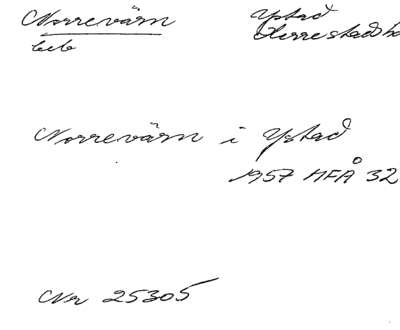 Norrevärn
beb
Ystad
Herrestads h
Norrevärn i Ystad
1957 MFÅ 32
Nr 25305